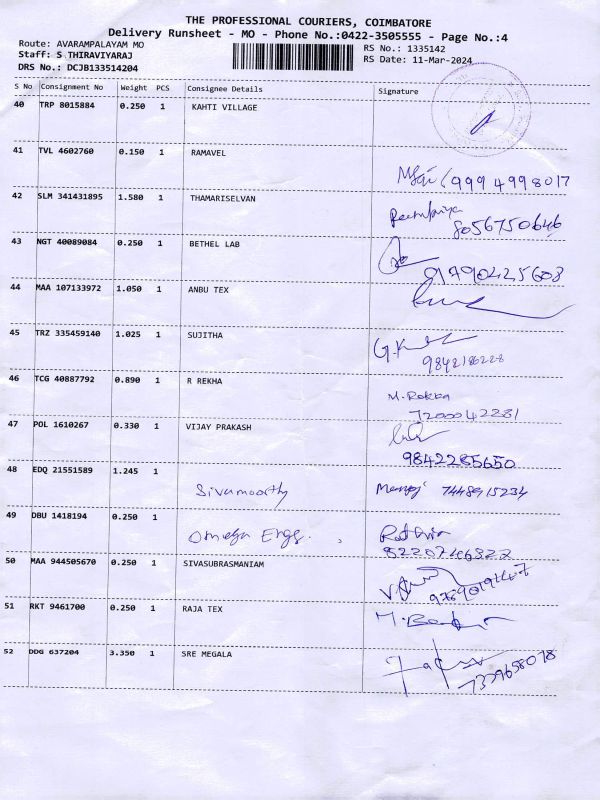 THE PROFESSIONAL COURIERS, COIMBATORE
Delivery Runsheet - MO - Phone No.:0422-3505555 - Page No.:4
Route: AVARAMPALAYAM MO RS No.: 1335142
Staff: S THIRAVIYARAJ RS Date: 11-Mar-2024
DRS No.: DCJB133514204
S No Consignment No Weight PCS Consignee Details Signature
40 TRP 8015884 0.250 1 KAHTI VILLAGE
41 TVL 4602760 0.150 1 RAMAVEL
9994998017
42 SLM 341431895 1.580 1 THAMARISELVAN
8056750646
43 NGT 40089084 0.250 1 BETHEL LAB
917904425608
44 MAA 107133972 1.050 1 ANBU TEX
45 TRZ 335459140 1.025 1 SUJITHA
9842186228
46 TCG 40887792 0.890 1 R REKHA
M. Rekka
7200042281
47 POL 1610267 0.330 1 VIJAY PRAKASH
9842285650
48 EDQ 21551589 1.245 1
Sivamoorthy Manoj 7448915234
49 DBU 1418194 0.250 1
Omega Engs.
50 MAA 944505670 0.250 1 SIVASUBRASMANIAM
51 RKT 9461700 0.250 1 RAJA TEX
52 DDG 637204 3.350 1 SRE MEGALA
7339658078